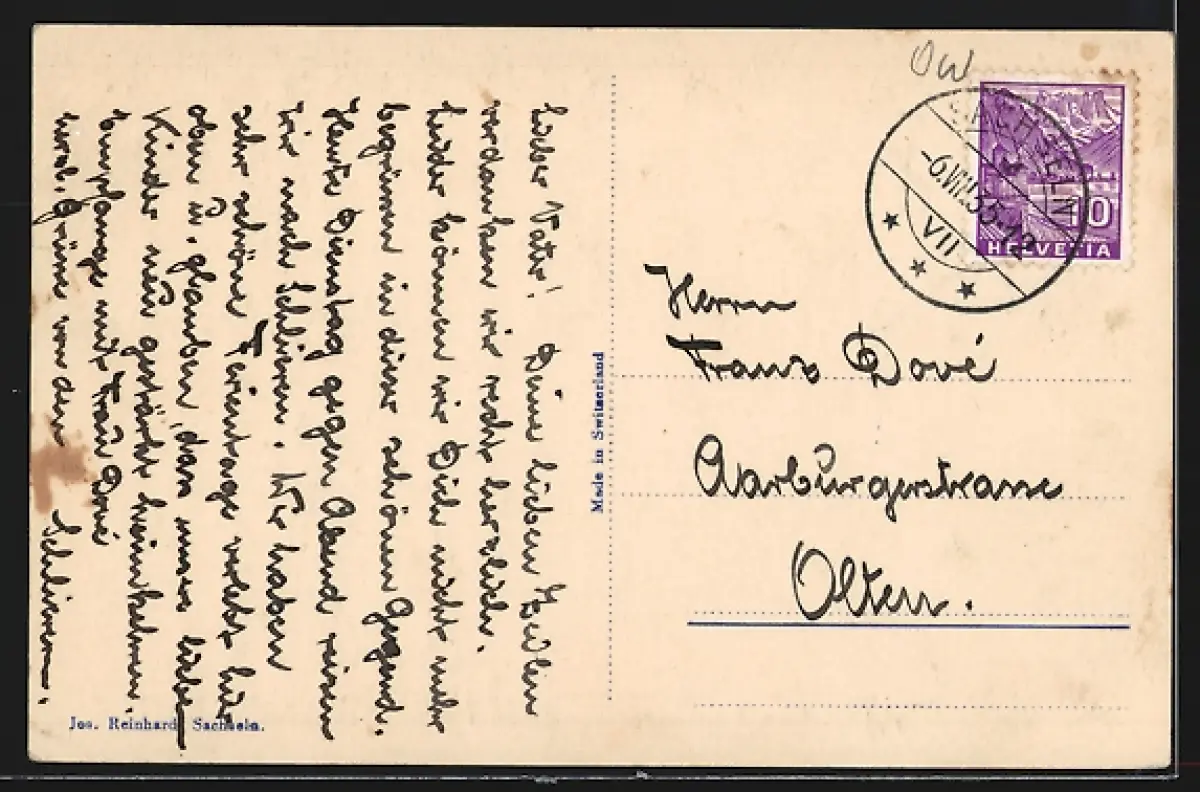 Lieber Vater! Deine lieben Zeilen
verdanken wir recht herzlich.
Leider können wir Dich nicht mehr
begrüssen in dieser schönen Gegend.
Heute Dienstag gegen Abend reisen
wir nach Schlieren. Wir haben
sehr schöne Ferientage verlebt hier
oben ü. glauben, dass unsere liebe
Kinder neu gestärkt heimkehren.
Empfange mit Frau Dové
herzl. Grüsse von den Schlieren.
Jos. Reinhard, Sachseln.
Made in Switzerland
OW
SACHSELN
-6.VIII.35.-12
VII
10
HELVETIA
Herrn
Franz Dové
Aarburgerstrasse
Olten.